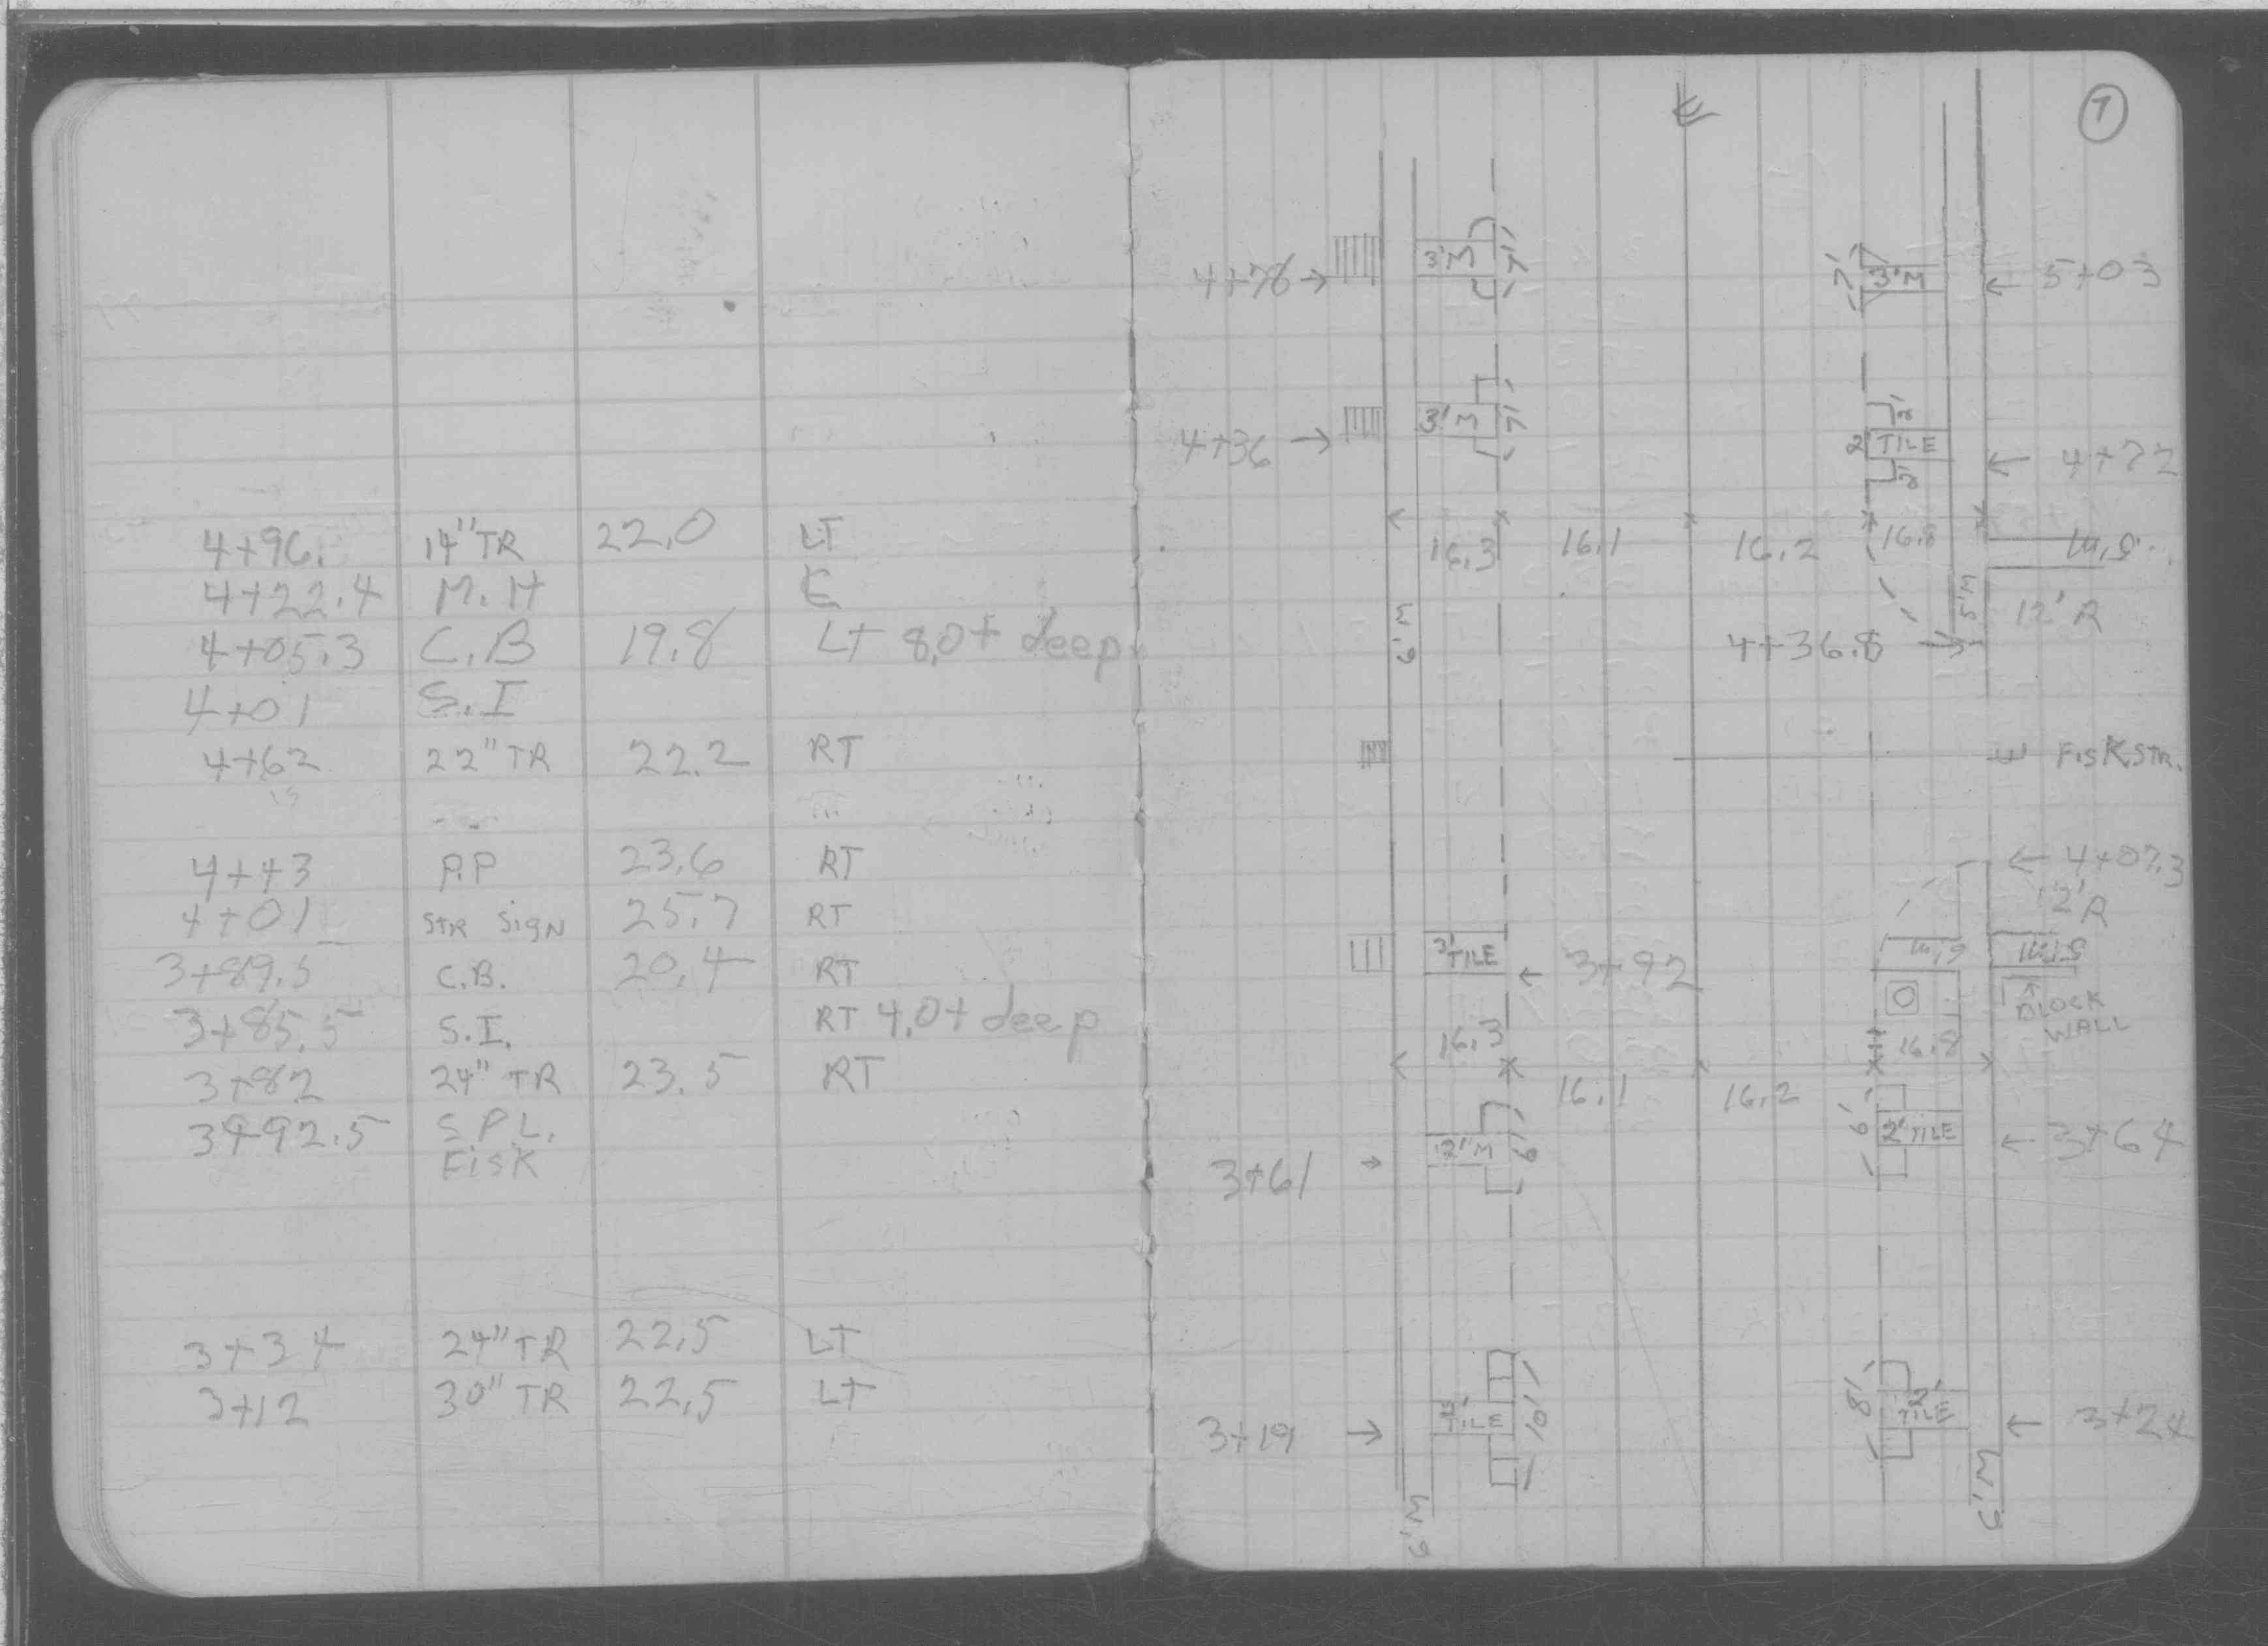 4+96. 14"TR 22.0 LT
4+22.4 M.H ℄
4+05.3 C.B 19.8 LT 8.0+ deep
4+01 S.I
4+62 22"TR 22.2 RT
4+43 P.P 23.6 RT
4+01 STR SIGN 25.7 RT
3+89.5 C.B. 20.4 RT
3+85.5 S.I. RT 4.0+ deep
3+82 24" TR 23.5 RT
3+92.5 S P.L.
FISK
3+34 24"TR 22.5 LT
3+12 30" TR 22.5 LT
℄ 7
4+78 → 3'M 7' 7' 3'M ← 5+03
4+36 → 3'M 7' 2' 2' TILE 2' ← 4+72
16.3 16.1 16.2 16.8 5'M
6'M 5'M 12'R
4+36.8 →
℄ FISK STR.
← 4+07.3
12'R
TILE ← 3+92 6'M 5'M
BLOCK
WALL
16.3 16.1 16.2 16.8
3+61 → 2'M 6' 6' 2' TILE ← 3+64
3+19 → TILE 10' 8' 2' TILE ← 3+24
6'M 6'M